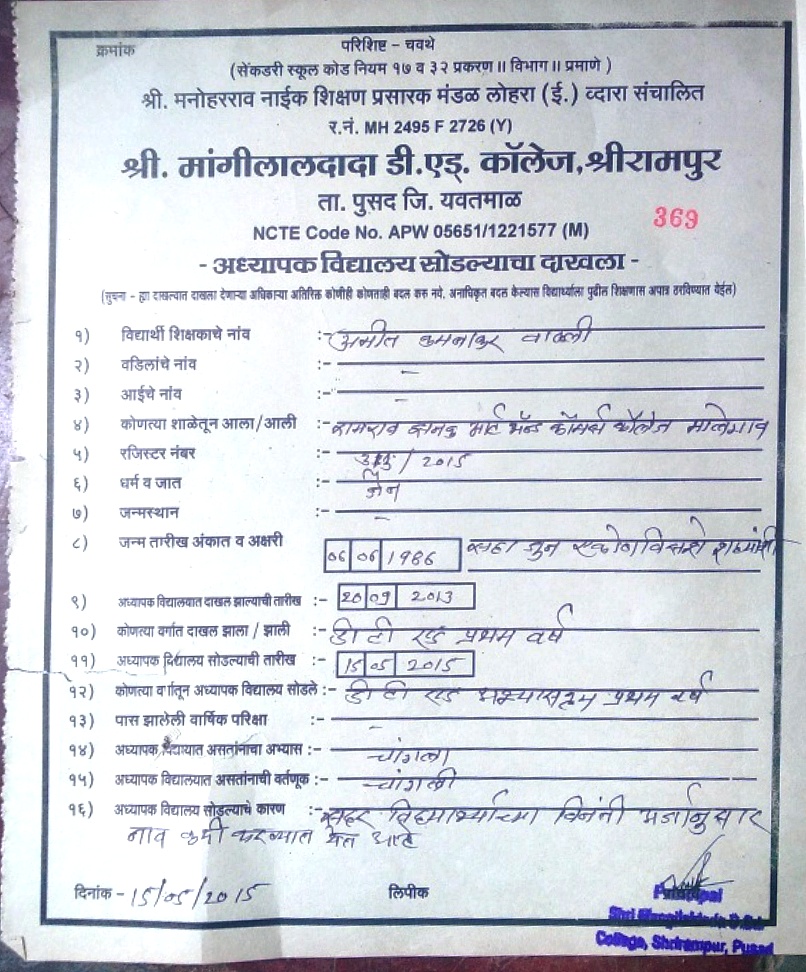 क्रमांक
परिशिष्ट - चवथे
(सेंकडरी स्कूल कोड नियम १७ व ३२ प्रकरण ॥ विभाग ॥ प्रमाणे )
श्री. मनोहरराव नाईक शिक्षण प्रसारक मंडळ लोहरा (ई.) व्दारा संचालित
र.नं. MH 2495 F 2726 (Y)
श्री. मांगीलालदादा डी.एड्. कॉलेज,श्रीरामपुर
ता. पुसद जि. यवतमाळ
369
NCTE Code No. APW 05651/1221577 (M)
- अध्यापक विद्यालय सोडल्याचा दाखला -
(सुचना - ह्या दाखल्यात दाखला देणाऱ्या अधिकाऱ्या अतिरिक्त कोणीही कोणताही बदल करु नये. अनाधिकृत बदल केल्यास विद्यार्थ्याला पुढील शिक्षणास अपात्र ठरविण्यात येईल)
१) विद्यार्थी शिक्षकाचे नांव :-
२) वडिलांचे नांव :- -
३) आईचे नांव :- -
४) कोणत्या शाळेतून आला/आली :- आर्ट अँन्ड कॉमर्स कॉलेज मालेगाव
५) रजिस्टर नंबर :- / 2015
६) धर्म व जात :- जैन
७) जन्मस्थान :- -
८) जन्म तारीख अंकात व अक्षरी 06 06 1986 सहा जुन एकोणविसशे
९) अध्यापक विद्यालयात दाखल झाल्याची तारीख :- 20 09 2013
१०) कोणत्या वर्गात दाखल झाला / झाली :- डी टी एड प्रथम वर्ष
११) अध्यापक विद्यालय सोडल्याची तारीख :- 15 05 2015
१२) कोणत्या वर्गातून अध्यापक विद्यालय सोडले :- डी टी एड अभ्यासक्रम प्रथम वर्ष
१३) पास झालेली वार्षिक परिक्षा :- -
१४) अध्यापक विद्यायात असतांनाचा अभ्यास :- चांगला
१५) अध्यापक विद्यालयात असतांनाची वर्तणूक :- चांगली
१६) अध्यापक विद्यालय सोडल्याचे कारण :- सदर विद्यार्थ्याच्या विनंती अर्जानुसार
नाव कमी करण्यात येत आहे
दिनांक - 15/05/2015 लिपीक
Principal
Shri Mangilaldada D.Ed.
College, Shrirampur, Pusad